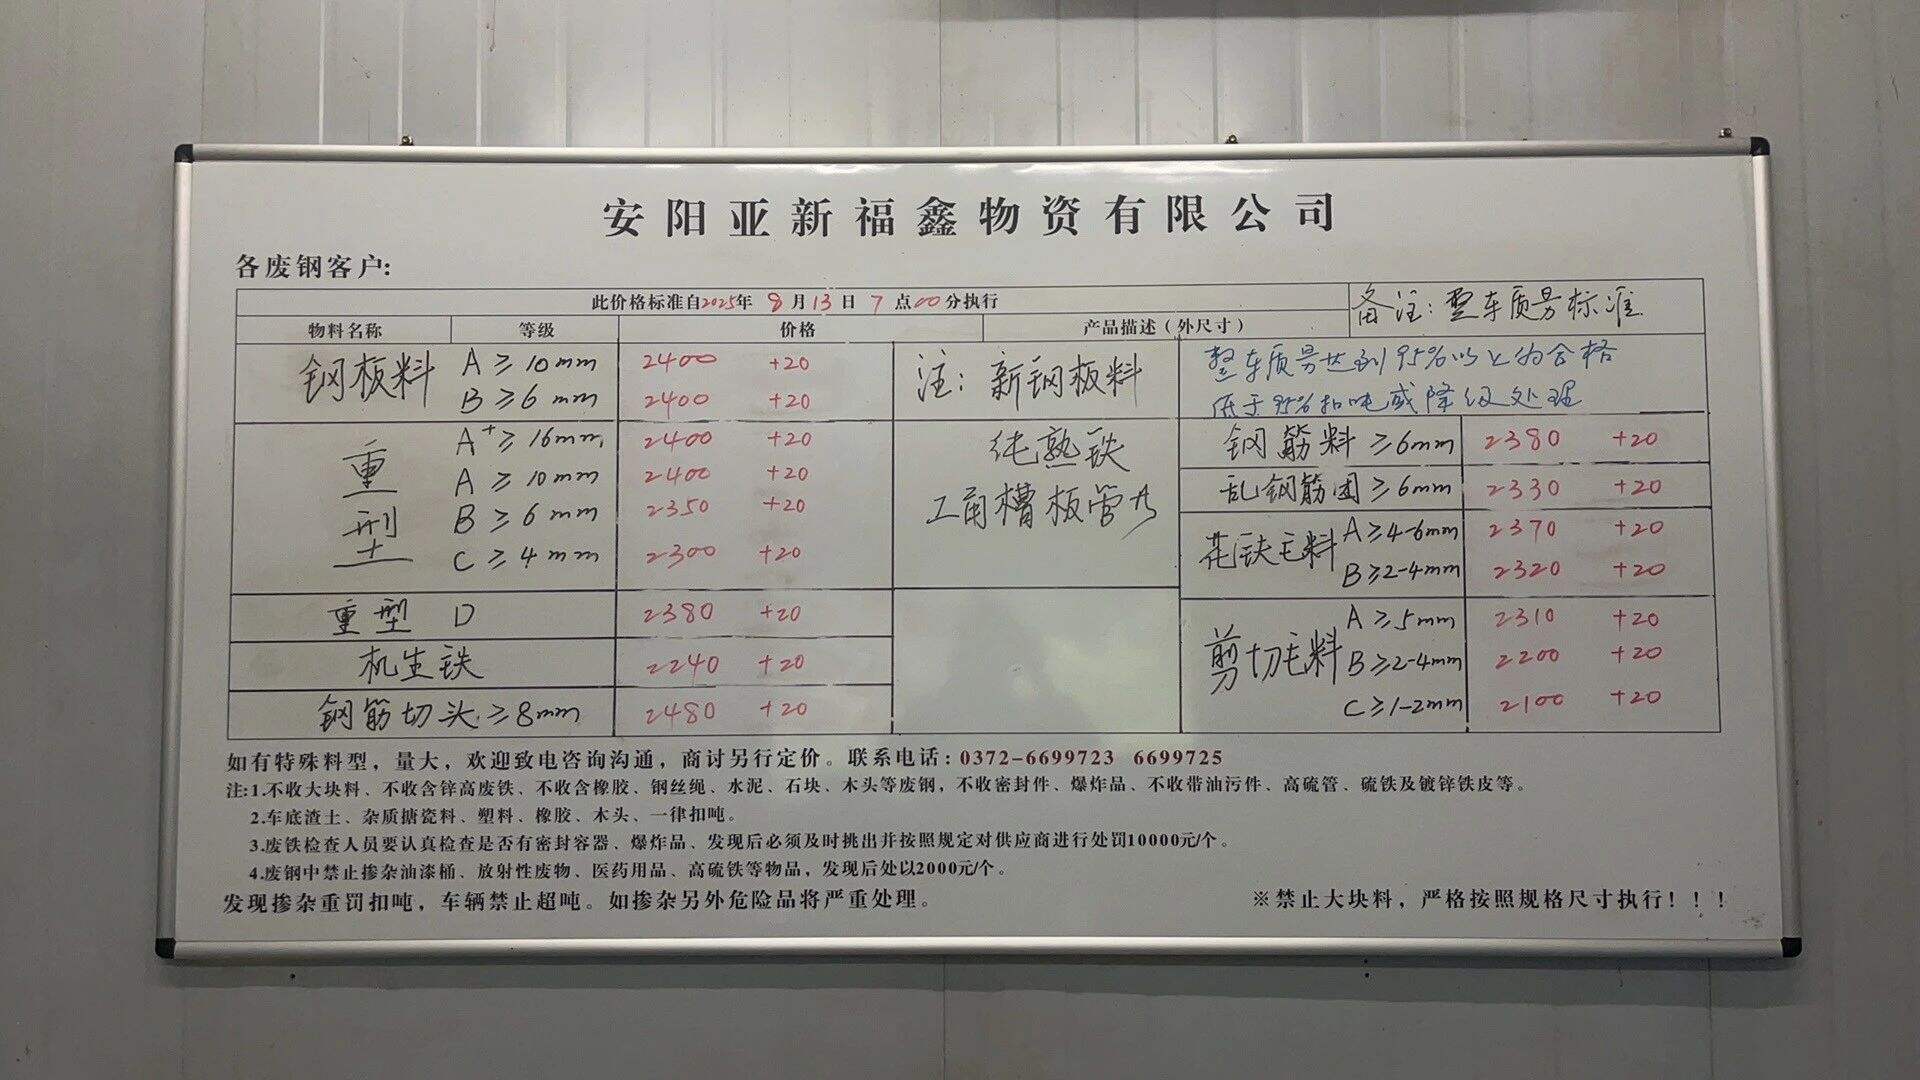 安阳亚新福鑫物资有限公司
各废钢客户:
此价格标准自2025年 8月13日 7点00分执行
备注: 整车质另标准
物料名称 等级 价格 产品描述(外尺寸)
钢板料 A≥10mm 2400 +20
B≥6mm 2400 +20
重型 A+≥16mm 2400 +20
A≥10mm 2400 +20
B≥6mm 2350 +20
C≥4mm 2300 +20
重型 D 2380 +20
机生铁 2240 +20
钢筋切头≥8mm 2480 +20
注: 新钢板料
纯熟铁
工角槽板管
整车质另达到95%以上为合格
低于95%扣吨或降级处理
钢筋料 ≥6mm 2380 +20
乱钢筋团≥6mm 2330 +20
花铁毛料 A≥4-6mm 2370 +20
B≥2-4mm 2320 +20
剪切毛料 A≥5mm 2310 +20
B≥2-4mm 2200 +20
C≥1-2mm 2100 +20
如有特殊料型，量大，欢迎致电咨询沟通，商讨另行定价。联系电话: 0372-6699723 6699725
注:1.不收大块料、不收含锌高废铁、不收含橡胶、钢丝绳、水泥、石块、木头等废钢，不收密封件、爆炸品、不收带油污件、高硫管、硫铁及镀锌铁皮等。
2.车底渣土、杂质搪瓷料、塑料、橡胶、木头、一律扣吨。
3.废铁检查人员要认真检查是否有密封容器、爆炸品、发现后必须及时挑出并按照规定对供应商进行处罚10000元/个。
4.废钢中禁止掺杂油漆桶、放射性废物、医药用品、高硫铁等物品，发现后处以2000元/个。
发现掺杂重罚扣吨，车辆禁止超吨。如掺杂另外危险品将严重处理。
※禁止大块料，严格按照规格尺寸执行！！！